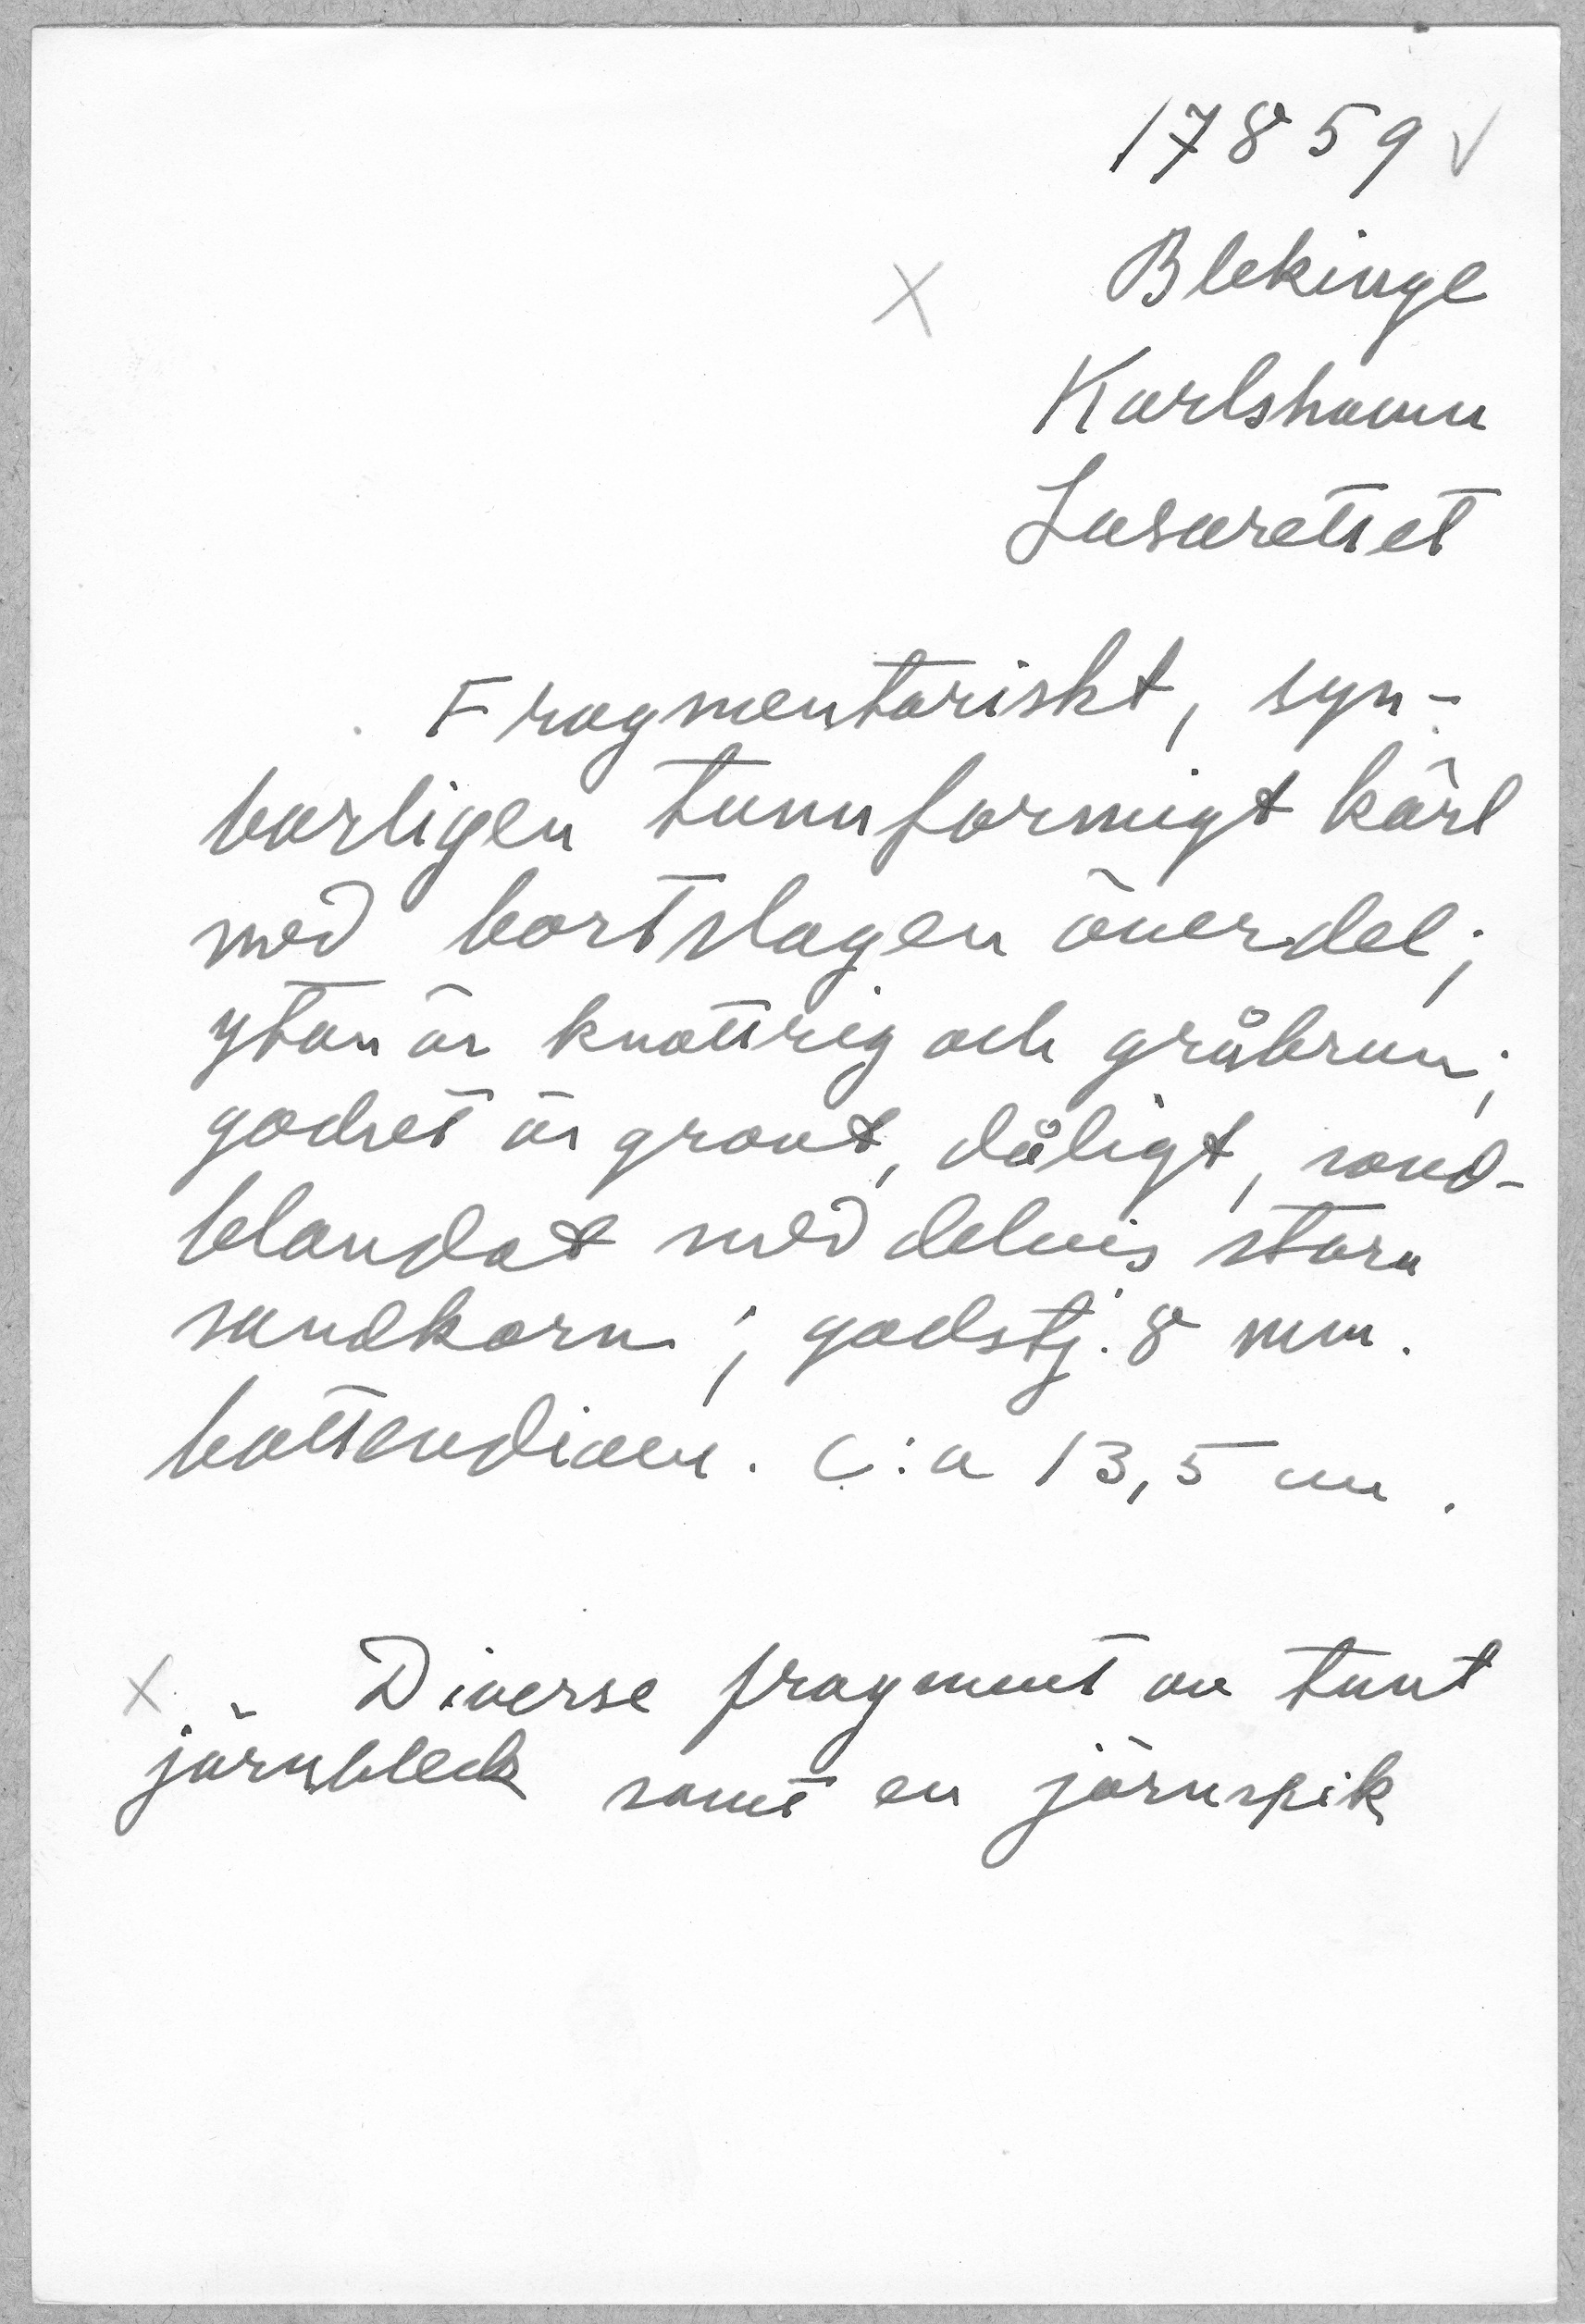 17859 √
x Blekinge
Karlshamn
Lasarettet
Fragmentariskt, syn-
barligen tunnformigt kärl
med bortslagen överdel;
ytan är knottrig och gråbrun;
godset är grovt, dåligt, sand-
blandat med delvis stora
sandkorn; godstj. 8 mm.
bottendiam. c:a 13,5 cm.
x. Diverse fragment av tunt
järnbleck samt en järnspik